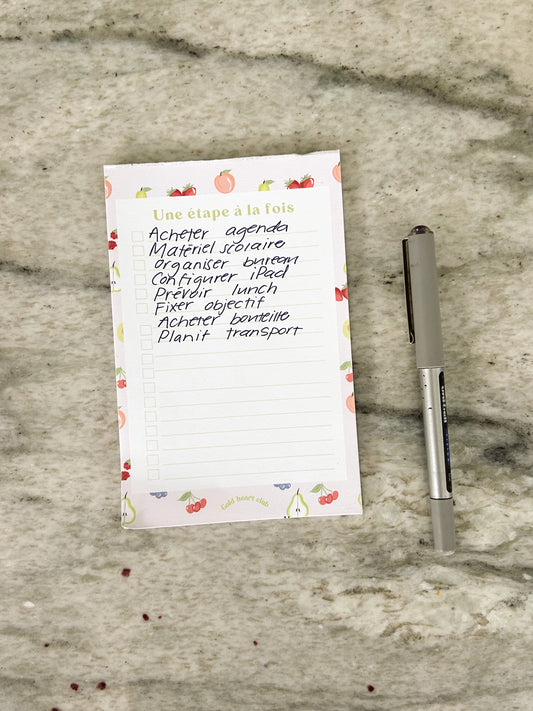 Une étape à la fois
Acheter agenda
Matériel scolaire
Organiser bureau
Configurer iPad
Prévoir lunch
Fixer objectif
Acheter bouteille
Planif transport
Gold heart club